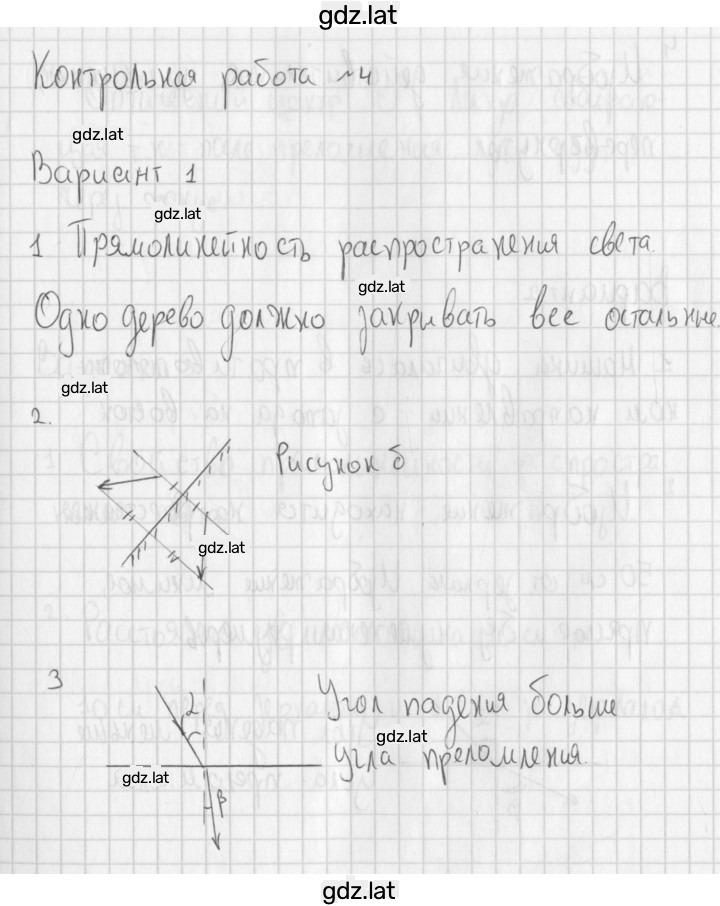 gdz.lat
Контрольная работа №4
gdz.lat
Вариант 1
gdz.lat
1 Прямолинейность распространения света.
gdz.lat
Одно дерево должно закривать все остальные.
gdz.lat
2.
Рисунок б
gdz.lat
3
2
Угол падения больше
gdz.lat
угла преломления.
gdz.lat
β
gdz.lat